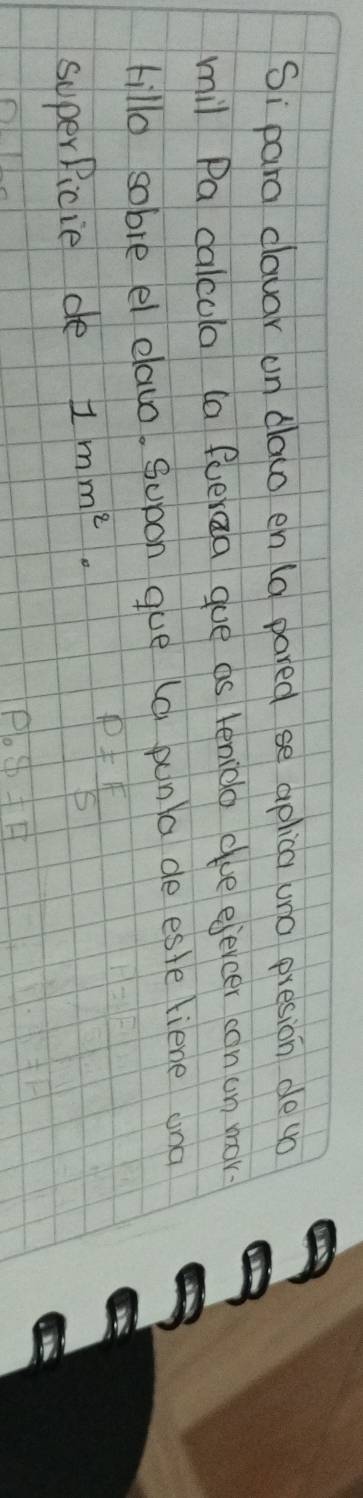 Si para clavar un clavo en la pared se aplica una presión de 40
mil Pa calcula la fuerza que as tenido que ejercer con un mar-
tillo sobre el clavo. Supon que la punta de este tiene una
superficie de 1 mm².
P = F
S
P. S = F